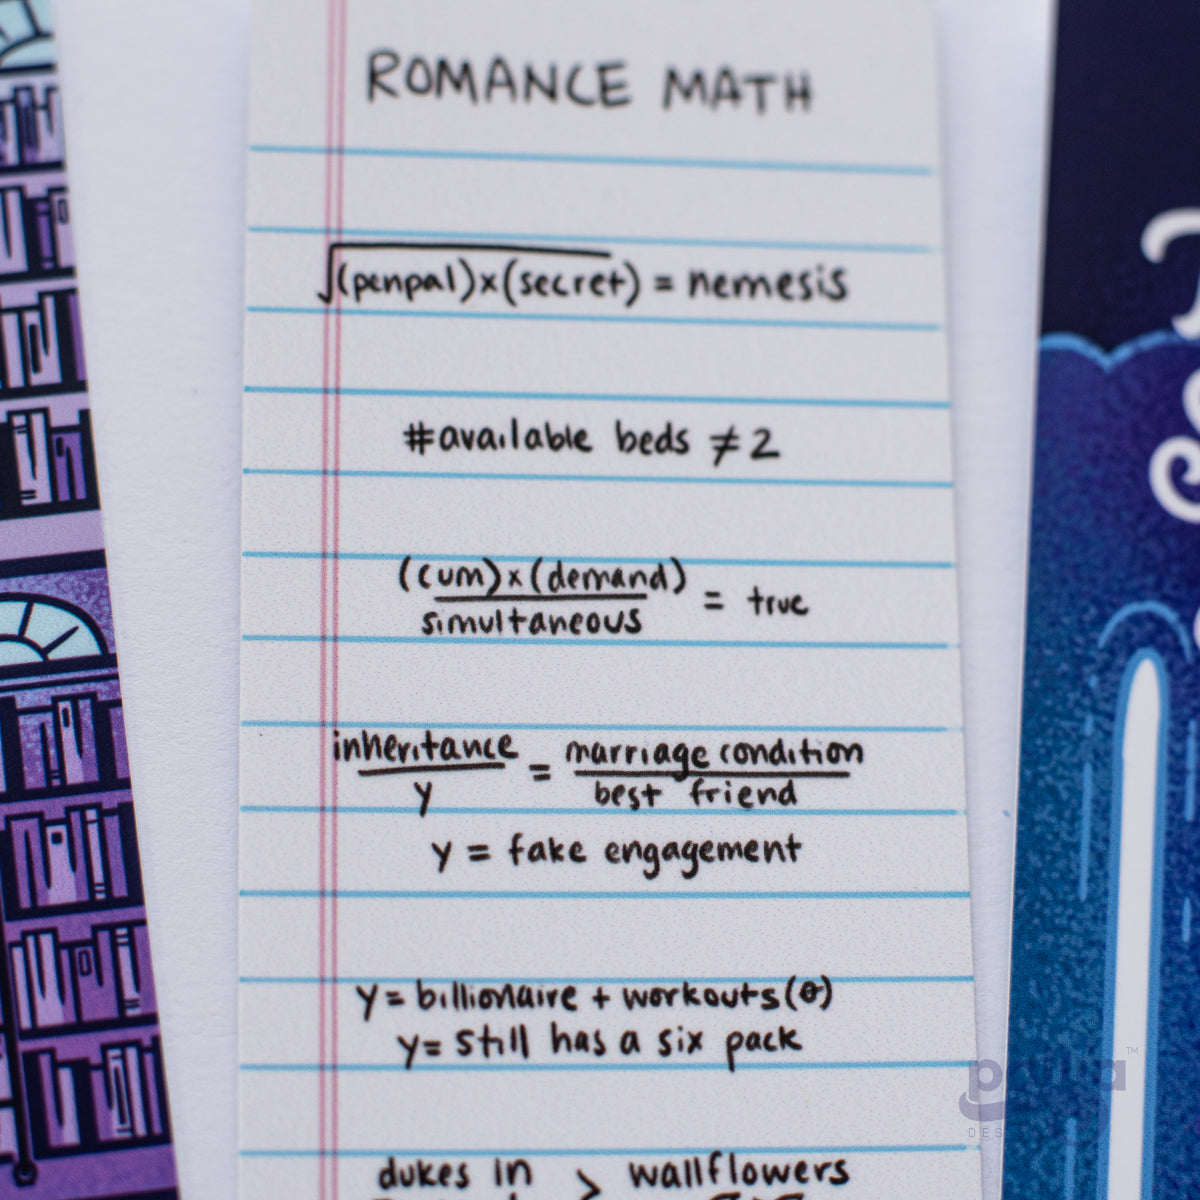 ROMANCE MATH
√(penpal)x(secret) = nemesis
#available beds ≠ 2
(cum)x(demand)
simultaneous
= true
inheritance
y
=
marriage condition
best friend
y = fake engagement
y = billionaire + workouts(0)
y= still has a six pack
dukes in > wallflowers
DES